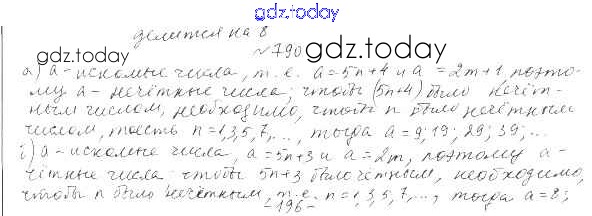 gdz.today
делится на 8
gdz.today
№ 790 gdz.today
а) а - искомые числа, т.е. а = 5n+4 и а = 2m+1, поэто-
му а - нечётные числа; чтобы (5n+4) было нечёт-
ным числом, необходимо, чтобы n было нечётным
числом, то есть n = 1,3,5,7,..., тогда а = 9; 19; 29; 39; ...
а - искомые числа, а = 5n+3 и а = 2m, поэтому а -
чётные числа. чтобы 5n+3 было чётным, необходимо,
чтобы n было нечётным, т.е. n = 1,3,5,7,..., тогда а = 8;
-196-